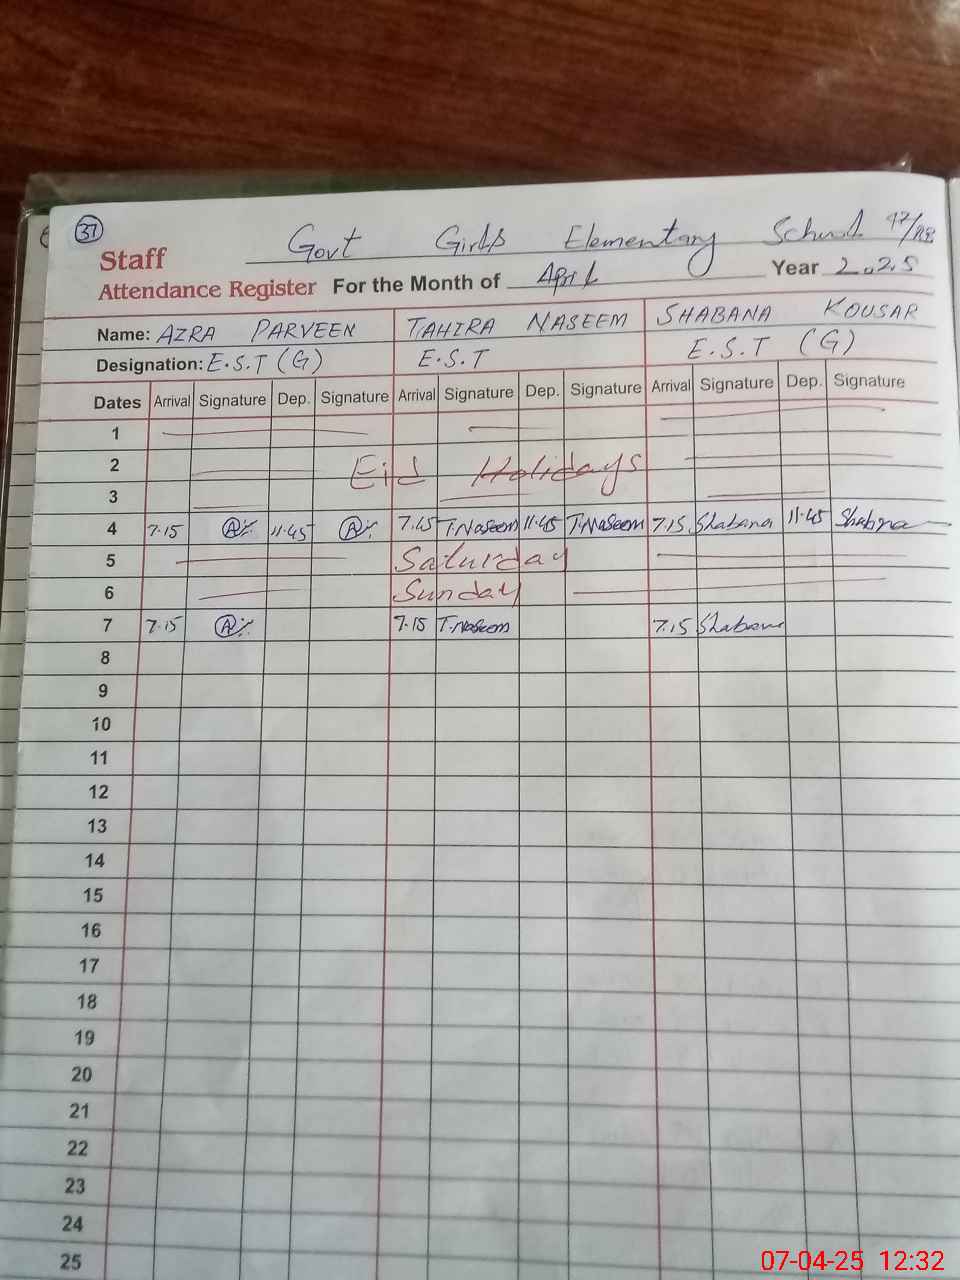 37
Govt Girls Elementary School 47/
Staff
Attendance Register For the Month of April Year 2025
Name: AZRA PARVEEN TAHIRA NASEEM SHABANA KOUSAR
Designation: E.S.T (G) E.S.T E.S.T (G)
Dates Arrival Signature Dep. Signature Arrival Signature Dep. Signature Arrival Signature Dep. Signature
1
2 Eid Holidays
3
4 7.15 11.45 7.15 T.Naseem 11.45 T.Naseem 7.15 Shabana 11.45 Shabana
5 Saturday
6 Sunday
7 7.15 7.15 T.Naseem 7.15 Shabana
8
9
10
11
12
13
14
15
16
17
18
19
20
21
22
23
24
25
07-04-25 12:32